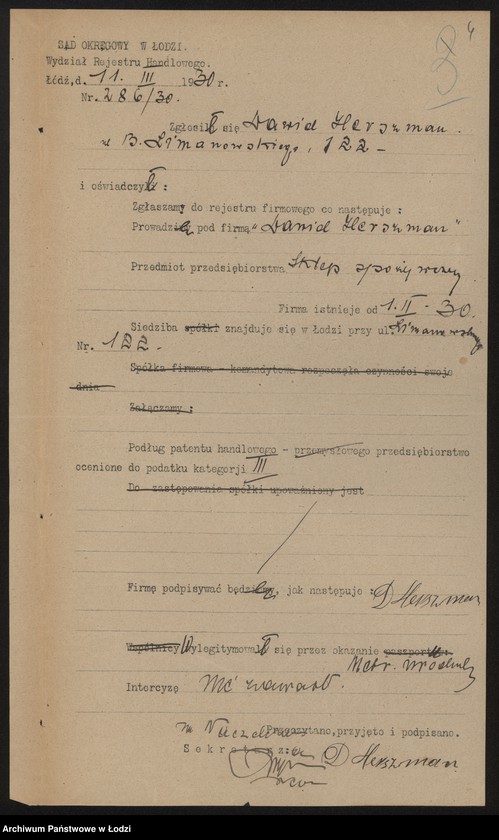 4
SĄD OKRĘGOWY W ŁODZI.
Wydział Rejestru Handlowego.
Łódź,d. 11. III 1930 r.
Nr. 286/30.
Zgłosił się Dawid Herszman.
B. Limanowskiego, 122 -
i oświadczył :
Zgłaszam do rejestru firmowego co następuje :
Prowadzi pod firmą "Dawid Herszman"
Przedmiot przedsiębiorstwa Sklep spożywczy
Firma istnieje od 1. II - 30.
Siedziba spółki znajduje się w Łodzi przy ul Limanowskiego
Nr. 122 -
Spółka firmowa - komandytowa rozpoczęła czynności swoje
dnia
Załączamy :
Podług patentu handlowego - przemysłowego przedsiębiorstwo
ocenione do podatku kategorji III
Do zastępowania spółki upoważniony jest
Firmę podpisywać będę, jak następuje : D Herszman
Wspólnicy Wylegitymował się przez okazanie paszportu
Metr. urodzenia
Intercyzę nie zawarł.
Przeczytano, przyjęto i podpisano.
Sekretarz: D Herszman
Archiwum Państwowe w Łodzi